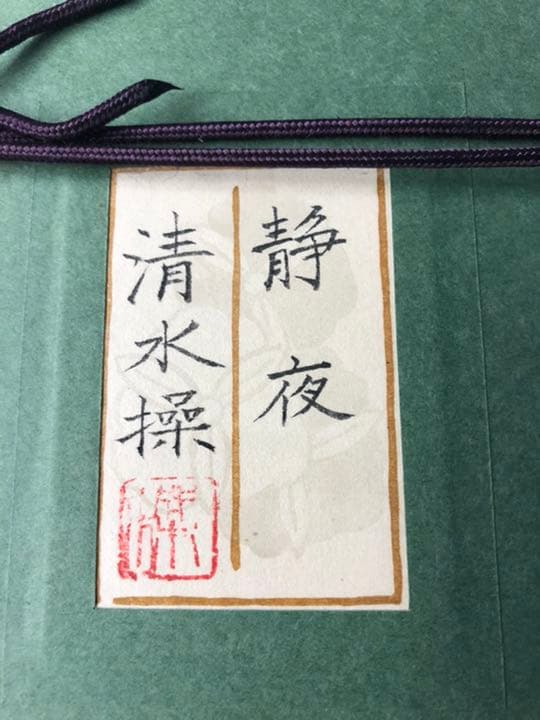 静夜
清水操